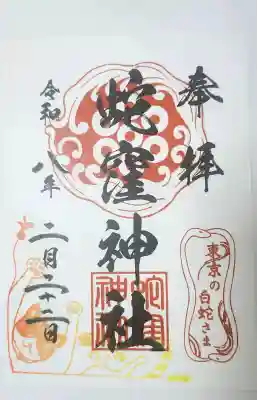 奉拝
蛇窪神社
令和八年
二月二十二日
東京の
白蛇さま